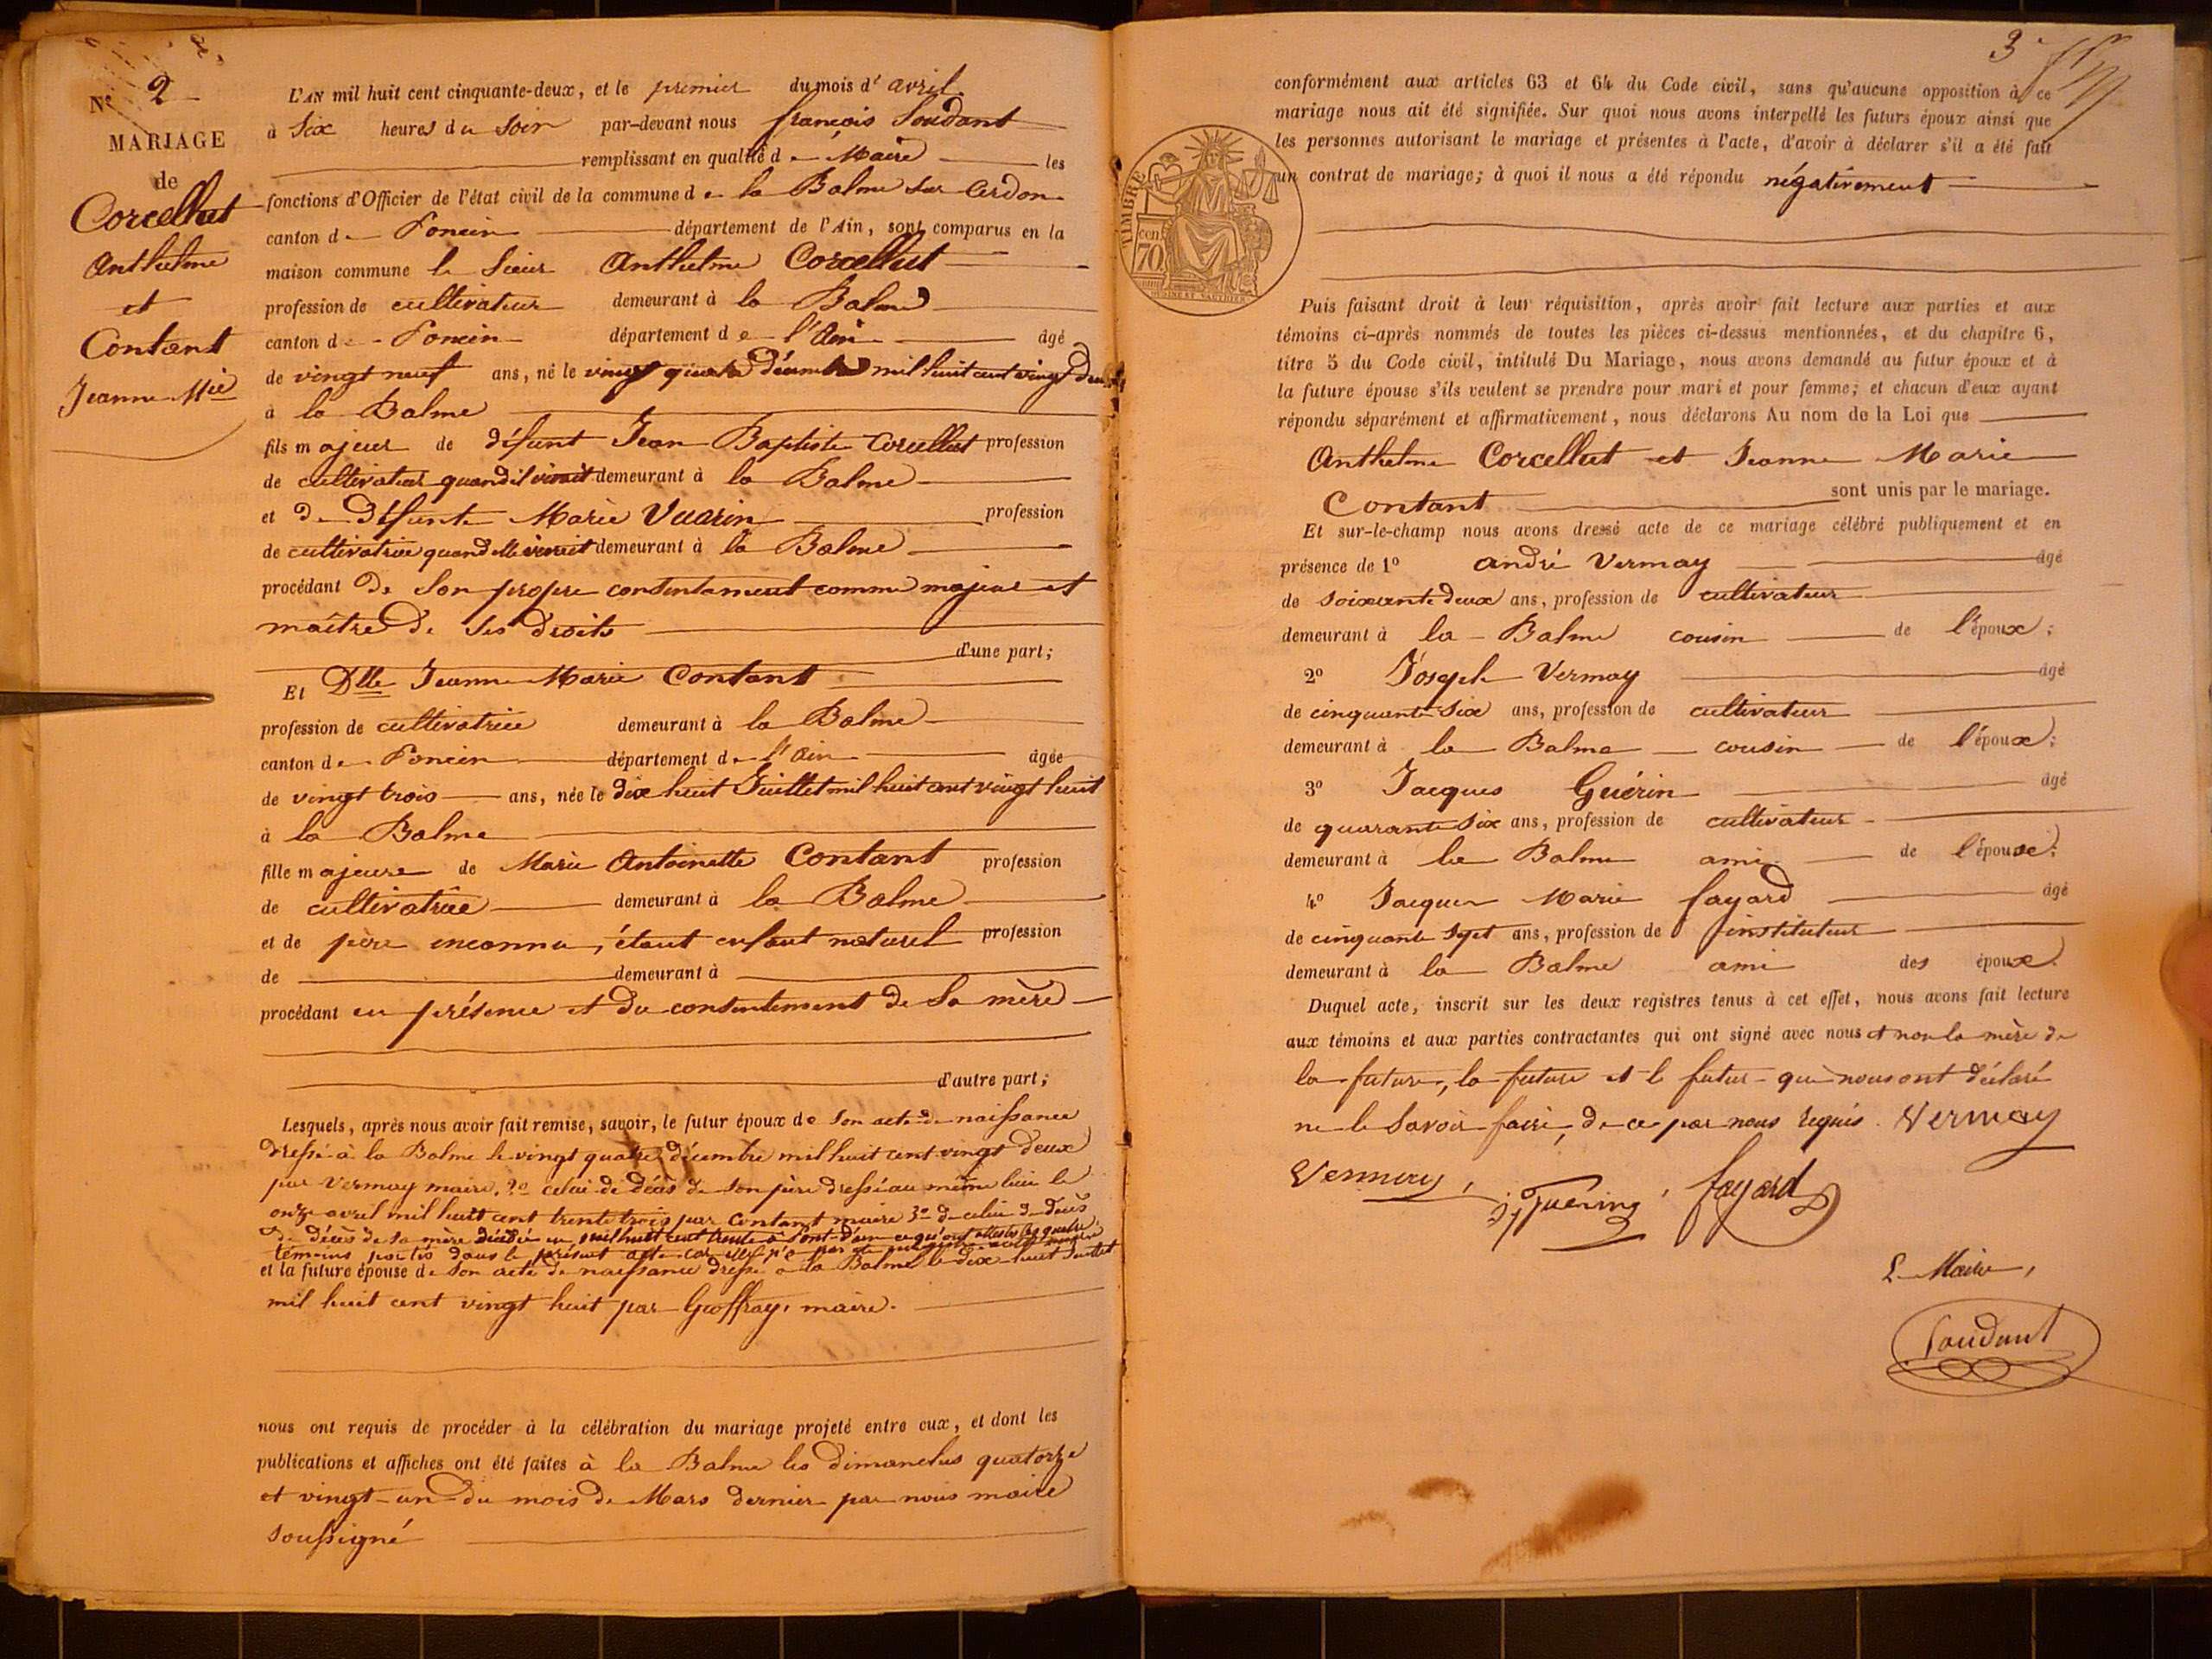 Nº 2
MARIAGE
de
Corcellut
Anthelme
et
Contant
Jeanne Mie
L'AN mil huit cent cinquante-deux, et le premier du mois d'avril
à Six heures du Soir par-devant nous françois Soudant
remplissant en qualité de Maire les
fonctions d'Officier de l'état civil de la commune de la Balme sur Cerdon
canton de Poncin département de l'Ain, sont comparus en la
maison commune le Sieur Anthelme Corcellut
profession de cultivateur demeurant à la Balme
canton de Poncin département de l'Ain âgé
de vingt neuf ans, né le vingt quatre décembre mil huit cent vingt deux
à la Balme
fils majeur de défunt Jean Baptiste Corcellut profession
de cultivateur quand il vivait demeurant à la Balme
et de défunte Marie Vuarin profession
de cultivatrice quand elle vivait demeurant à la Balme
procédant de Son propre consentement comme majeur et
maître de ses droits
d'une part;
Et Dlle Jeanne Marie Contant
profession de cultivatrice demeurant à la Balme
canton de Poncin département de l'Ain âgée
de vingt trois ans, née le dix huit Juillet mil huit cent vingt huit
à la Balme
fille majeure de Marie Antoinette Contant profession
de cultivatrice demeurant à la Balme
et de père inconnu, étant enfant naturel profession
de demeurant à
procédant en présence et du consentement de Sa mère
d'autre part;
Lesquels, après nous avoir fait remise, savoir, le futur époux de Son acte de naissance
dressé à la Balme le vingt quatre décembre mil huit cent vingt deux
par Vermay maire, 2º celui de décès de Son père dressé au même lieu le
onze avril mil huit cent trente trois par Contant maire 3º de celui de décès
de décès de Sa mère décédée en mil huit cent trente
témoins portés dans le présent acte
et la future épouse de Son acte de naissance dressé à la Balme le dix huit Juillet
mil huit cent vingt huit par Geoffray, maire.
nous ont requis de procéder à la célébration du mariage projeté entre eux, et dont les
publications et affiches ont été faites à la Balme les dimanches quatorze
et vingt-un du mois de Mars dernier par nous maire
soussigné
3
conformément aux articles 63 et 64 du Code civil, sans qu'aucune opposition à ce
mariage nous ait été signifiée. Sur quoi nous avons interpellé les futurs époux ainsi que
les personnes autorisant le mariage et présentes à l'acte, d'avoir à déclarer s'il a été fait
un contrat de mariage; à quoi il nous a été répondu négativement
TIMBRE
cen.
70.
Puis faisant droit à leur réquisition, après avoir fait lecture aux parties et aux
témoins ci-après nommés de toutes les pièces ci-dessus mentionnées, et du chapitre 6,
titre 5 du Code civil, intitulé Du Mariage, nous avons demandé au futur époux et à
la future épouse s'ils veulent se prendre pour mari et pour femme; et chacun d'eux ayant
répondu séparément et affirmativement, nous déclarons Au nom de la Loi que
Anthelme Corcellut et Jeanne Marie
Contant sont unis par le mariage.
Et sur-le-champ nous avons dressé acte de ce mariage célébré publiquement et en
présence de 1º andré Vermay âgé
de soixante deux ans, profession de cultivateur
demeurant à la Balme cousin de l'époux;
2º Joseph Vermay âgé
de cinquante six ans, profession de cultivateur
demeurant à la Balme cousin de l'époux;
3º Jacques Guérin âgé
de quarante six ans, profession de cultivateur
demeurant à la Balme ami de l'épouse;
4º Jacques Marie fayard âgé
de cinquante sept ans, profession de instituteur
demeurant à la Balme ami des époux.
Duquel acte, inscrit sur les deux registres tenus à cet effet, nous avons fait lecture
aux témoins et aux parties contractantes qui ont signé avec nous et non la mère de
la future, la future et le futur qui nous ont déclaré
ne le Savoir faire, de ce par nous requis. Vermay
Vermay, j. Guering, fayard
Le Maire,
Soudant